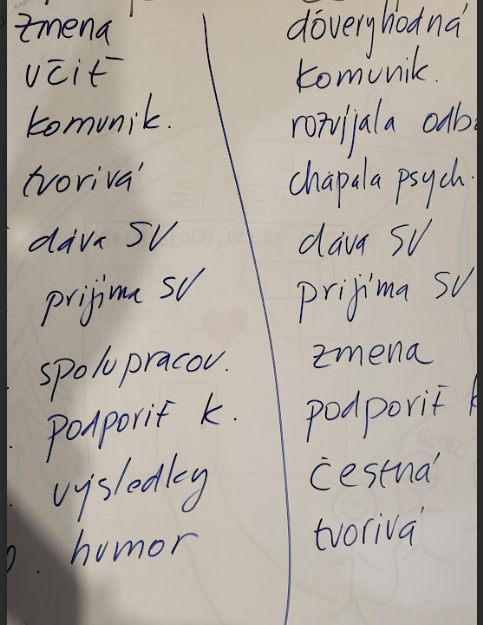 zmena
učiť
komunik.
tvorivá
dáva SV
prijíma SV
spolupracov.
podporiť k.
výsledky
humor
dôveryhodná
komunik.
rozvíjala odb
chápala psych.
dáva SV
prijíma SV
zmena
podporiť k
čestná
tvorivá